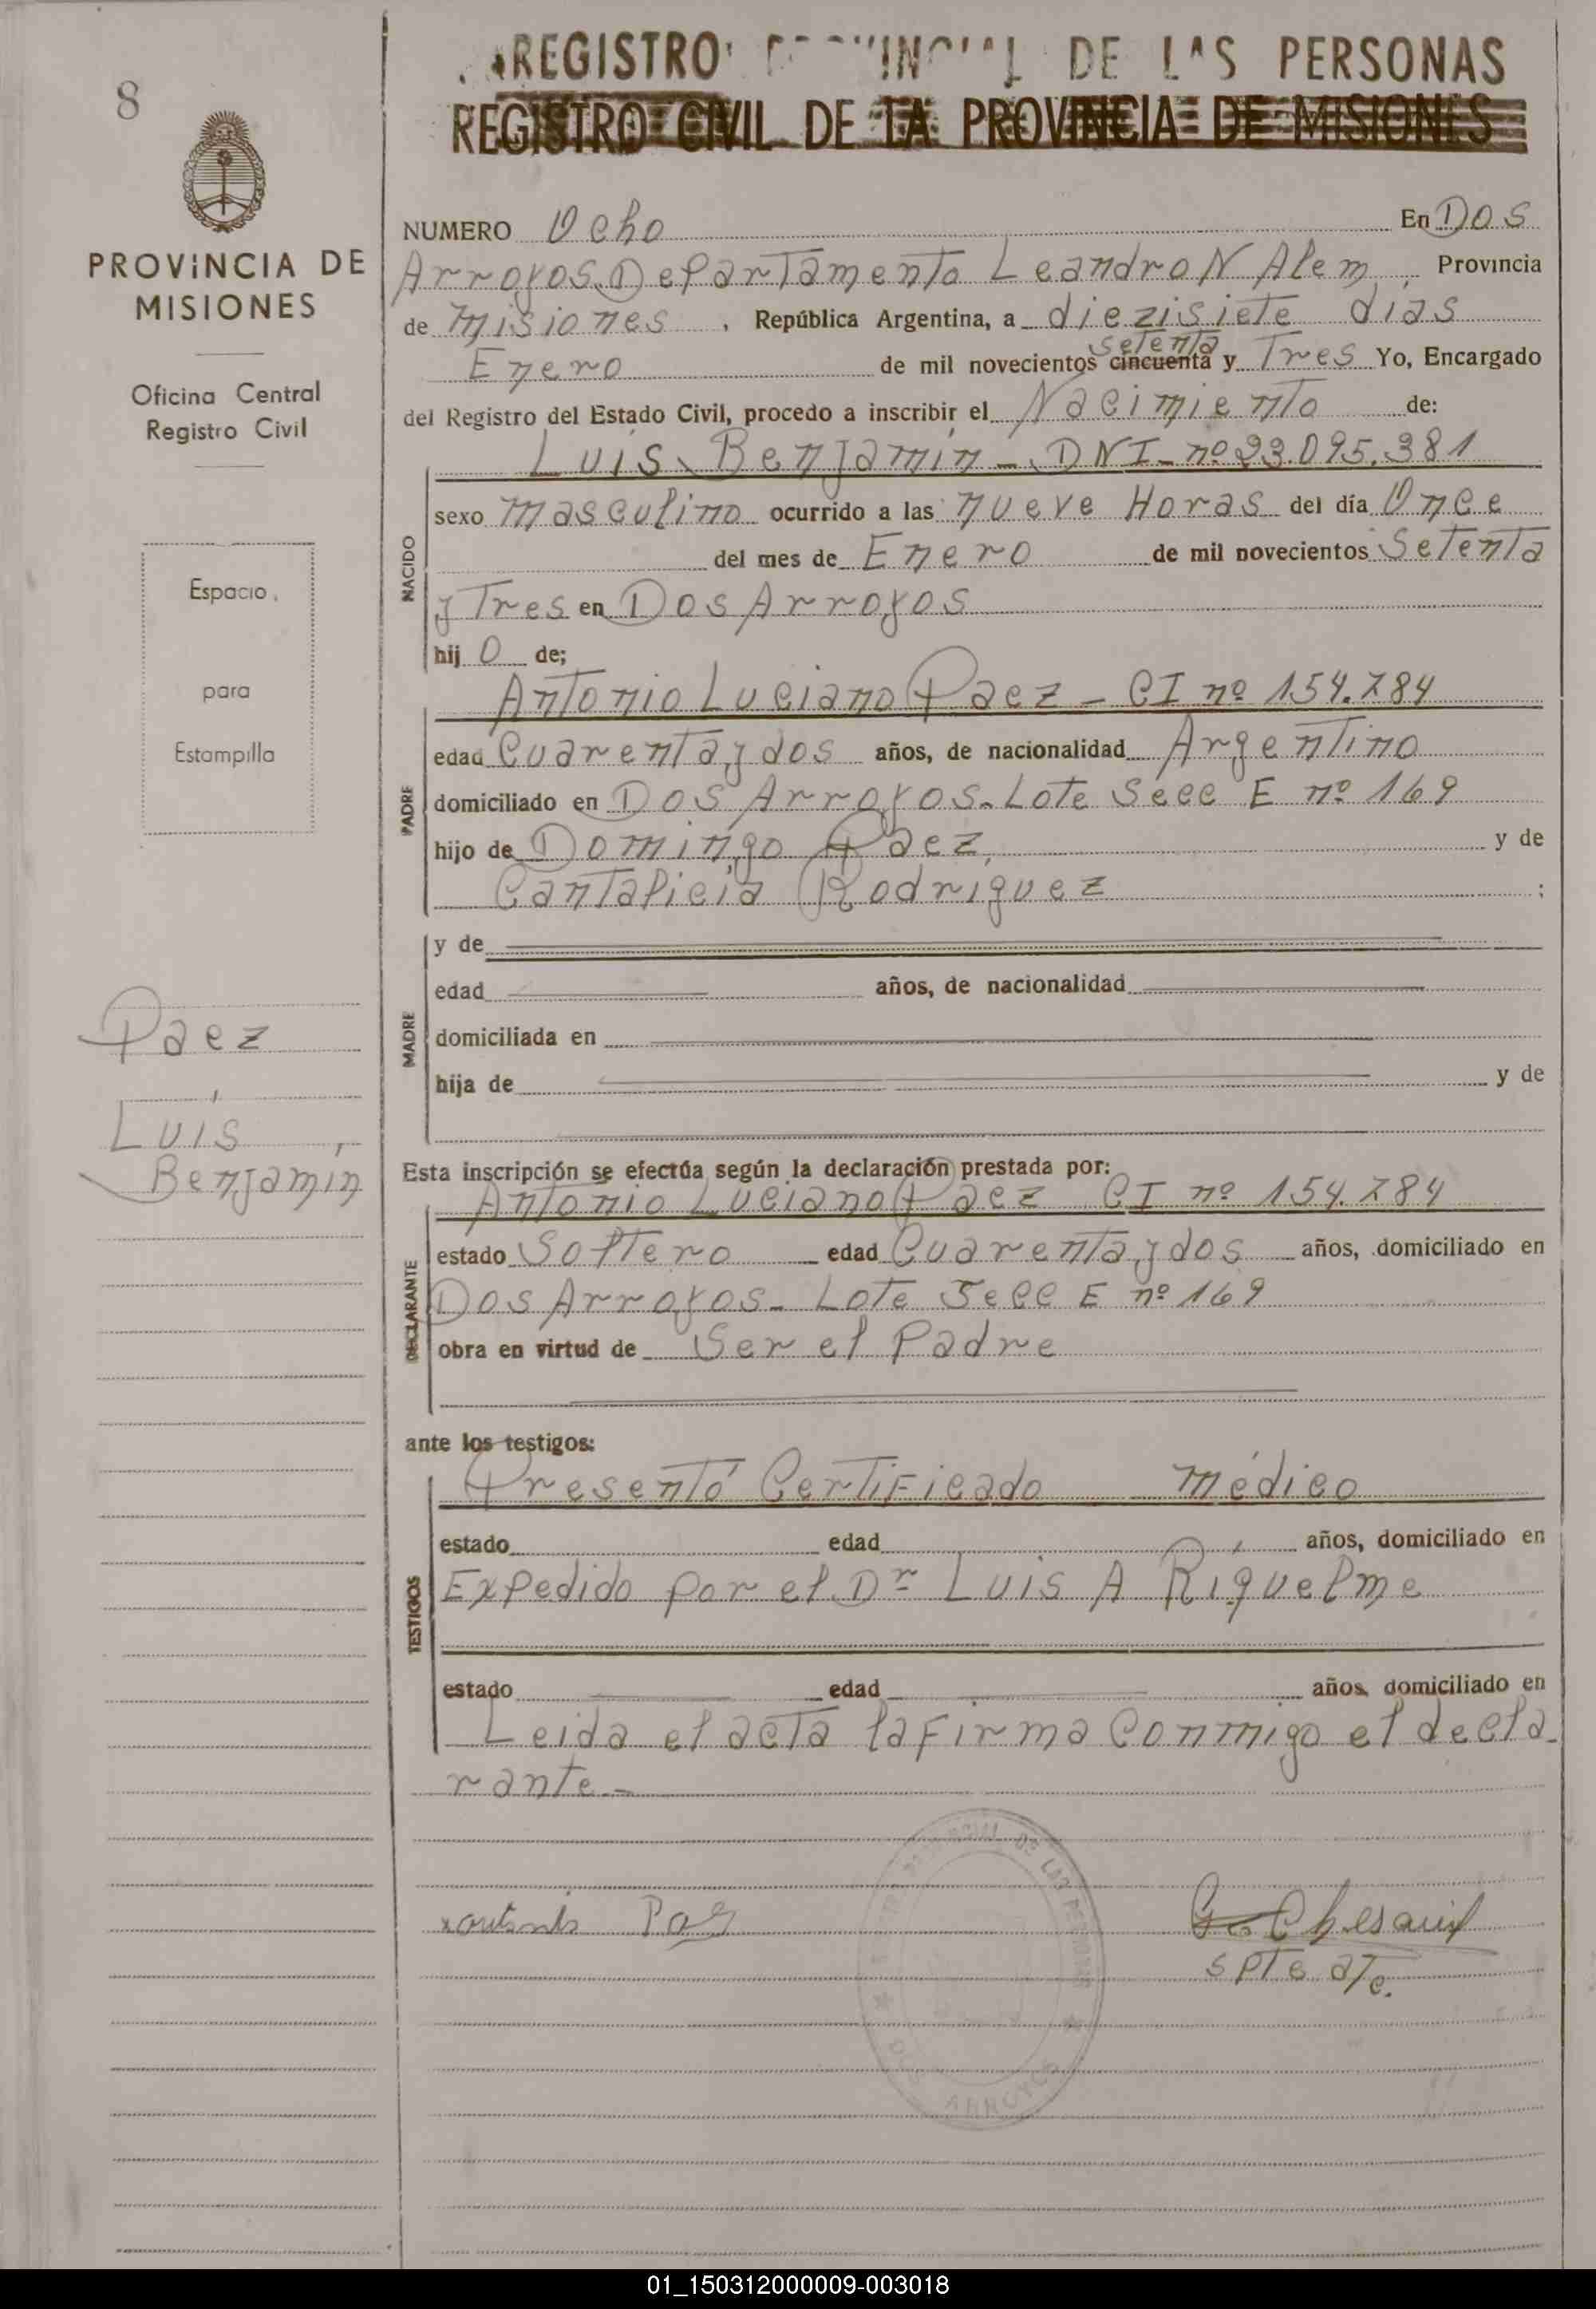 8
PROVINCIA DE
MISIONES
Oficina Central
Registro Civil
Espacio
para
Estampilla
Paez
Luis
Benjamín
REGISTRO PROVINCIAL DE LAS PERSONAS
REGISTRO CIVIL DE LA PROVINCIA DE MISIONES
NUMERO Ocho En Dos
Arroyos. Departamento Leandro N Alem Provincia
de Misiones, República Argentina, a diezisiete días
setenta
Enero de mil novecientos cincuenta y Tres Yo, Encargado
del Registro del Estado Civil, procedo a inscribir el Nacimiento de:
Luis Benjamín - DNI - nº 23.095.381
NACIDO
sexo masculino ocurrido a las nueve Horas del día Once
del mes de Enero de mil novecientos Setenta
y Tres en Dos Arroyos
hij o de;
Antonio Luciano Paez - CI nº 154.784
PADRE
edad Cuarenta y dos años, de nacionalidad Argentino
domiciliado en Dos Arroyos. Lote Secc E nº 169
hijo de Domingo Paez, y de
Cantalicia Rodriguez ;
MADRE
y de
edad años, de nacionalidad
domiciliada en
hija de y de
Esta inscripción se efectúa según la declaración prestada por:
Antonio Luciano Paez CI nº 154.784
DECLARANTE
estado Soltero edad Cuarenta y dos años, domiciliado en
Dos Arroyos - Lote Secc E nº 169
obra en virtud de Ser el Padre
ante los testigos:
Presentó Certificado Médico
TESTIGOS
estado edad años, domiciliado en
Expedido por el Dr Luis A Riquelme
estado edad años, domiciliado en
Leida el acta la firma Conmigo el decla-
rante -
DE LAS PERSONAS
ARROYOS
01_150312000009-003018